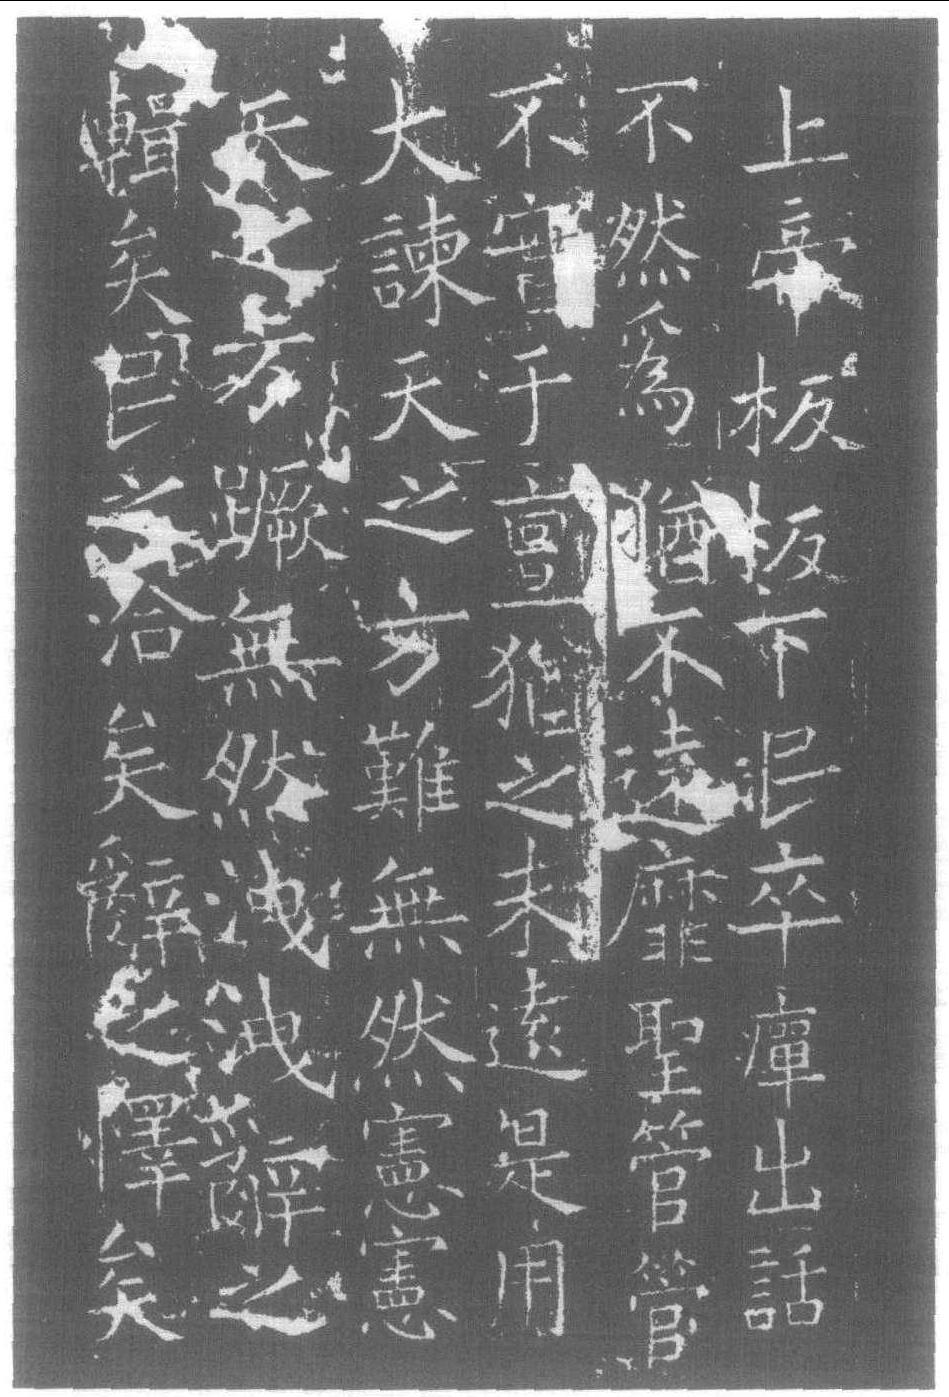 上帝板板下民卒癉出話
不然爲猶不遠靡聖管管
不實于亶猶之未遠是用
大諫天之方難無然憲憲
天之方蹶無然洩洩辭之
輯矣民之洽矣辭之懌矣